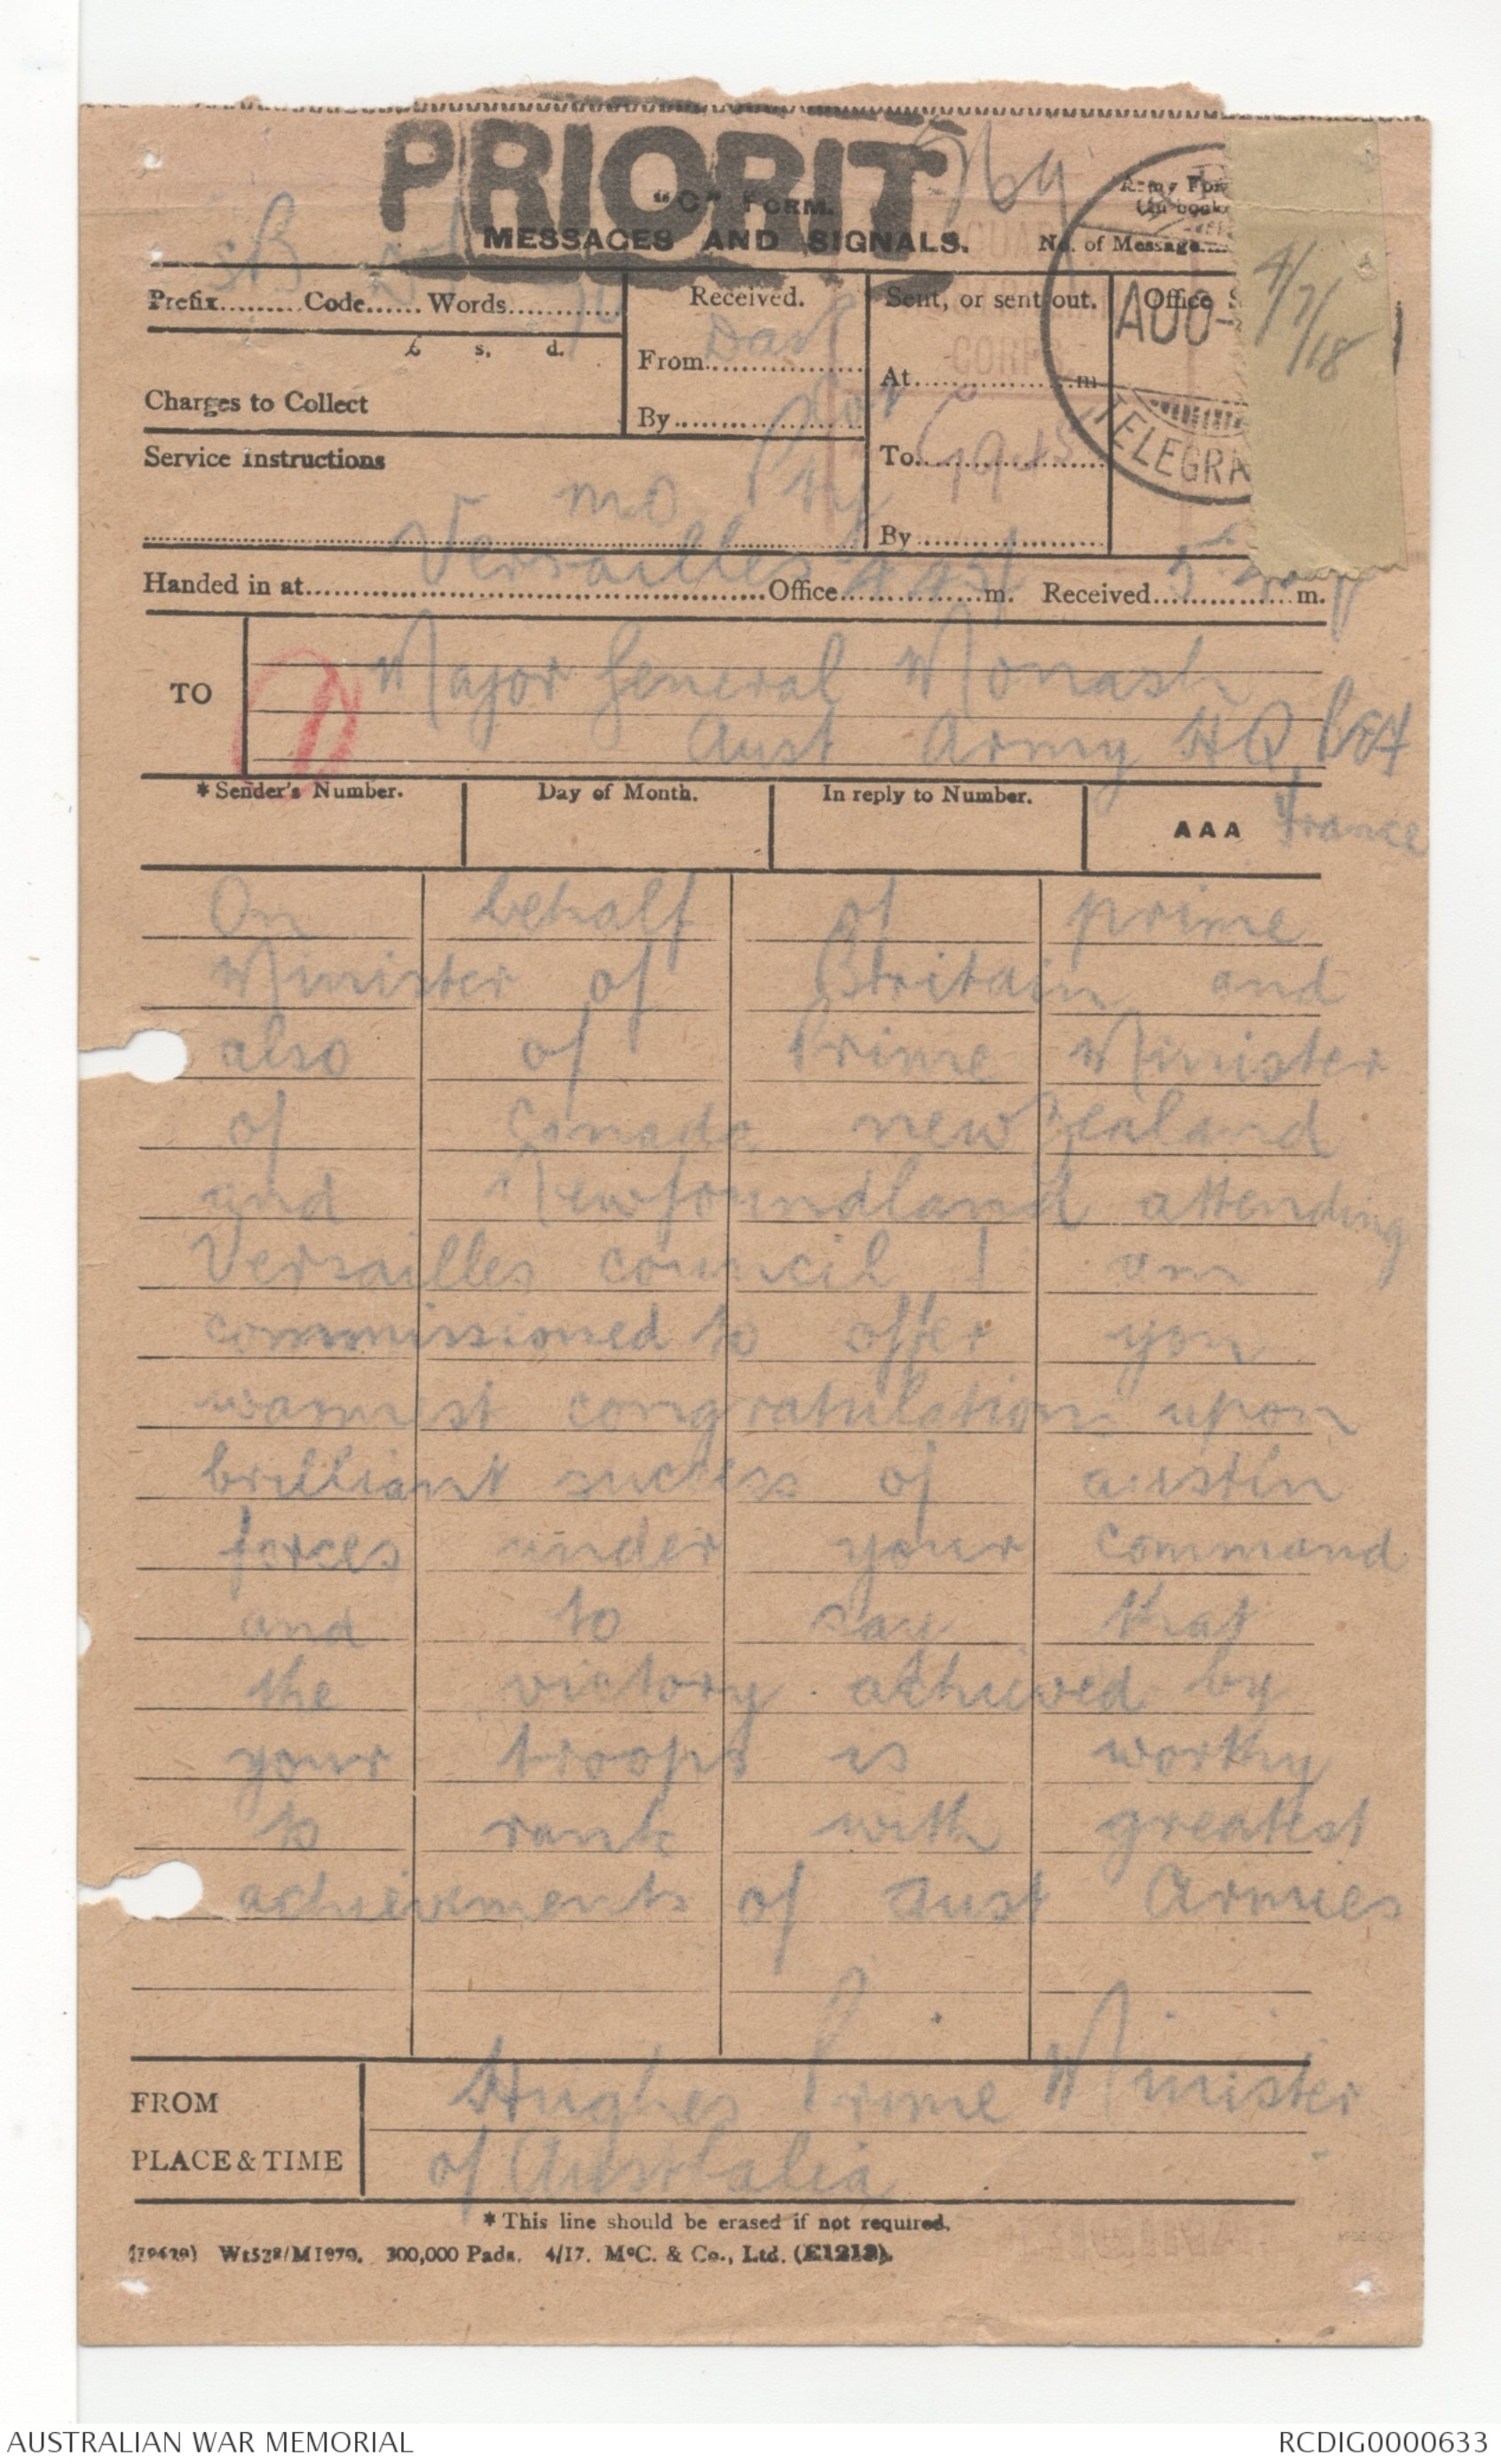 PRIORIT
"C" FORM.
MESSAGES AND SIGNALS.
Army For
(In book
No. of Message
Prefix......... Code...... Words............
£ s. d.
Charges to Collect
Received.
From
By
Sent, or sent out.
At m
To
By
Office S
AUO-
TELEGRA
4/7/18
Service Instructions
Pty
Handed in at Versailles Office m. Received m.
TO
Major General Monash
Aust Army HQ
France
* Sender's Number. Day of Month. In reply to Number. AAA
On behalf of prime
Minister of Britain and
also of Prime Minister
of Canada new Zealand
and Newfoundland attending
Versailles council I am
commissioned to offer you
warmest congratulations upon
brilliant success of austin
forces under your command
and to say that
the victory achieved by
your troops is worthy
to rank with greatest
achievements of Aust Armies
FROM
PLACE & TIME
Hughes Prime Minister
of Australia
* This line should be erased if not required.
Wt528/M1970. 300,000 Pads. 4/17. McC. & Co., Ltd. (E1213).
AUSTRALIAN WAR MEMORIAL
RCDIG0000633